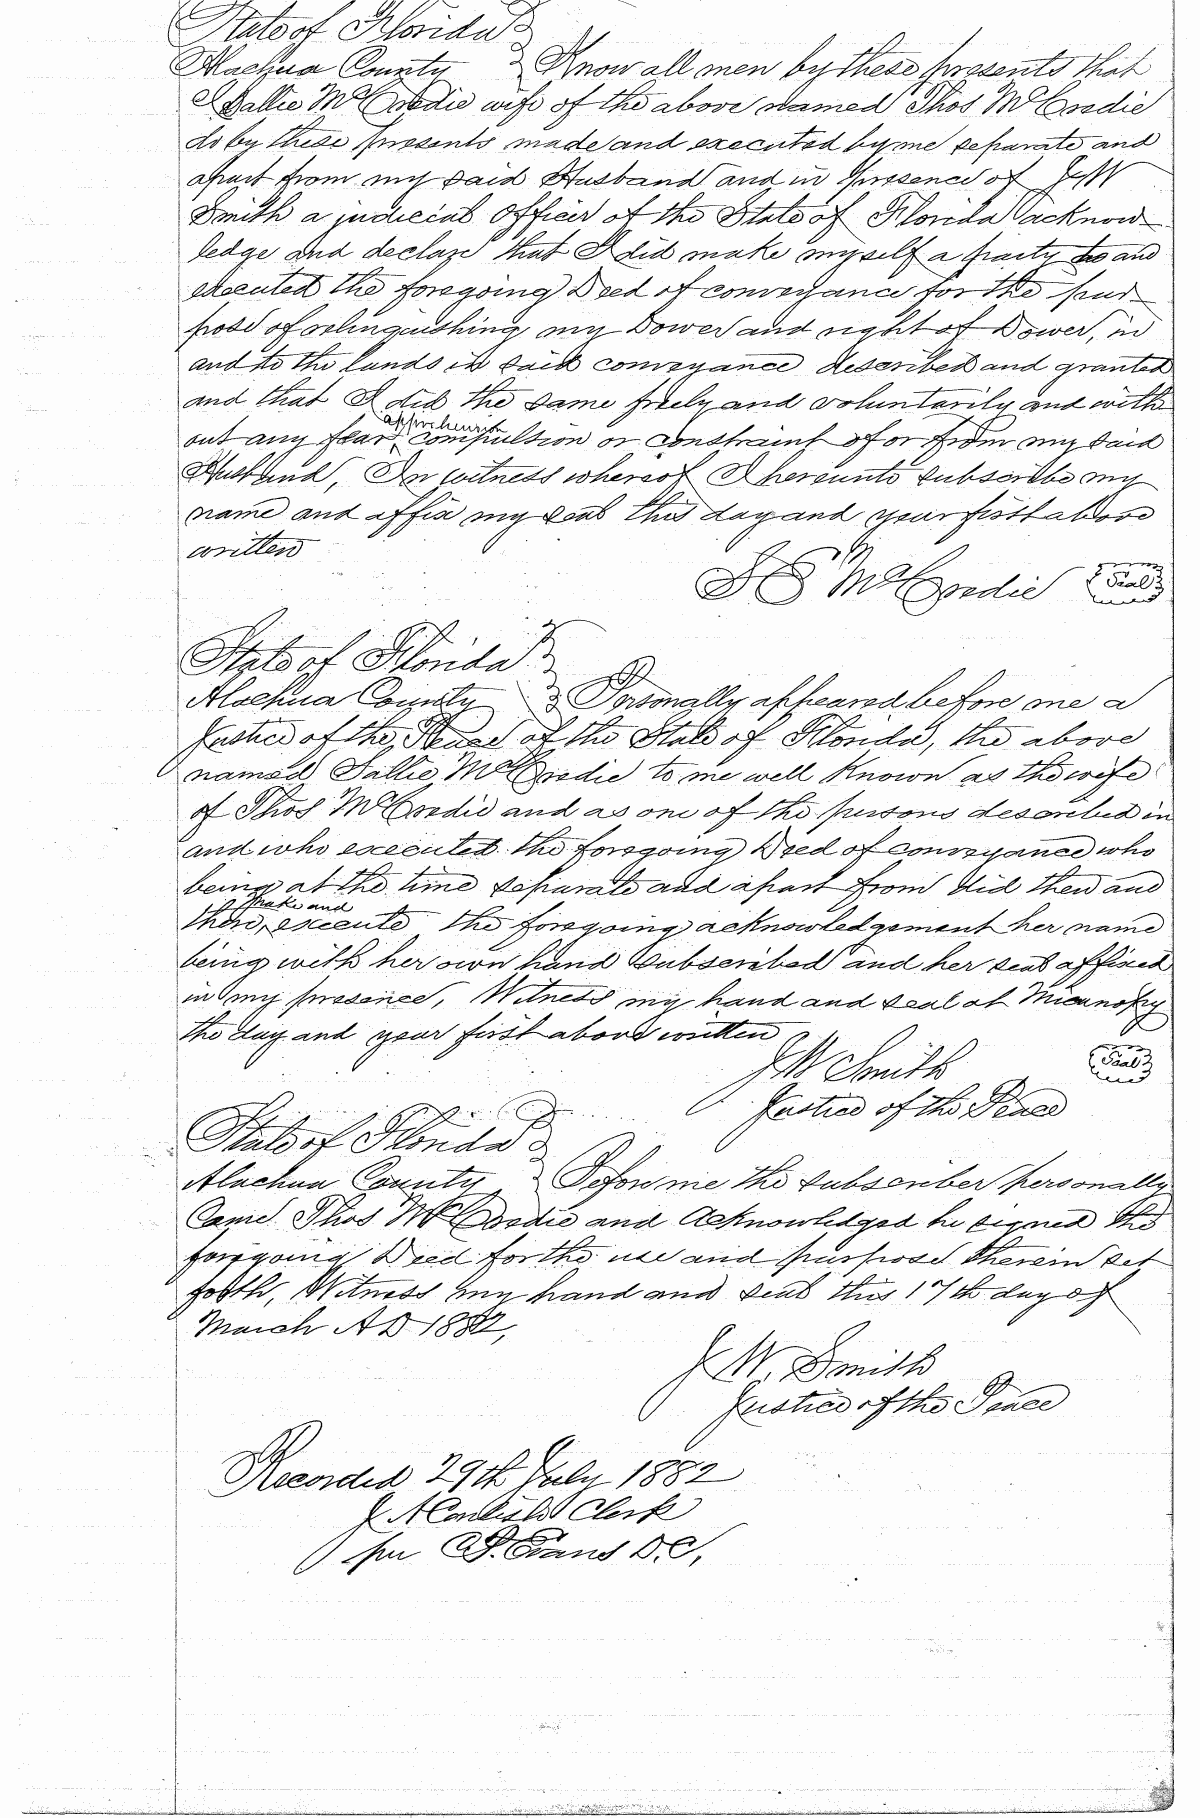 State of Florida
Alachua County Know all men by these presents that
I Sallie McCredie wife of the above named Thos McCredie
do by these presents made and executed by me separate and
apart from my said Husband and in presence of J W
Smith a judicial Officer of the State of Florida acknow
ledge and declare that I did make myself a party to and
executed the foregoing Deed of conveyance for the pur
pose of relinquishing my Dower and right of Dower, in
and to the lands in said conveyance described and granted
and that I did the same freely and voluntarily and with
out any fear apprehension compulsion or constraint of or from my said
Husband, In witness whereof I hereunto subscribe my
name and affix my seal this day and year first above
written
S E McCredie Seal
State of Florida
Alachua County Personally appeared before me a
Justice of the Peace of the State of Florida, the above
named Sallie McCredie to me well Known as the wife
of Thos McCredie and as one of the persons described in
and who executed the foregoing Deed of conveyance who
being at the time separate and apart from did then and
there make and execute the foregoing acknowledgement her name
being with her own hand subscribed and her seal affixed
in my presence, Witness my hand and seal at Micanopy
the day and year first above written
J W Smith Seal
Justice of the Peace
State of Florida
Alachua County Before me the subscriber personally
Came Thos McCredie and Acknowledged he signed the
foregoing Deed for the use and purpose therein set
forth, Witness my hand and seal this 17th day of
March AD 1882,
J W. Smith
Justice of the Peace
Recorded 29th July 1882
J A Carlisle Clerk
per Evans D.C,